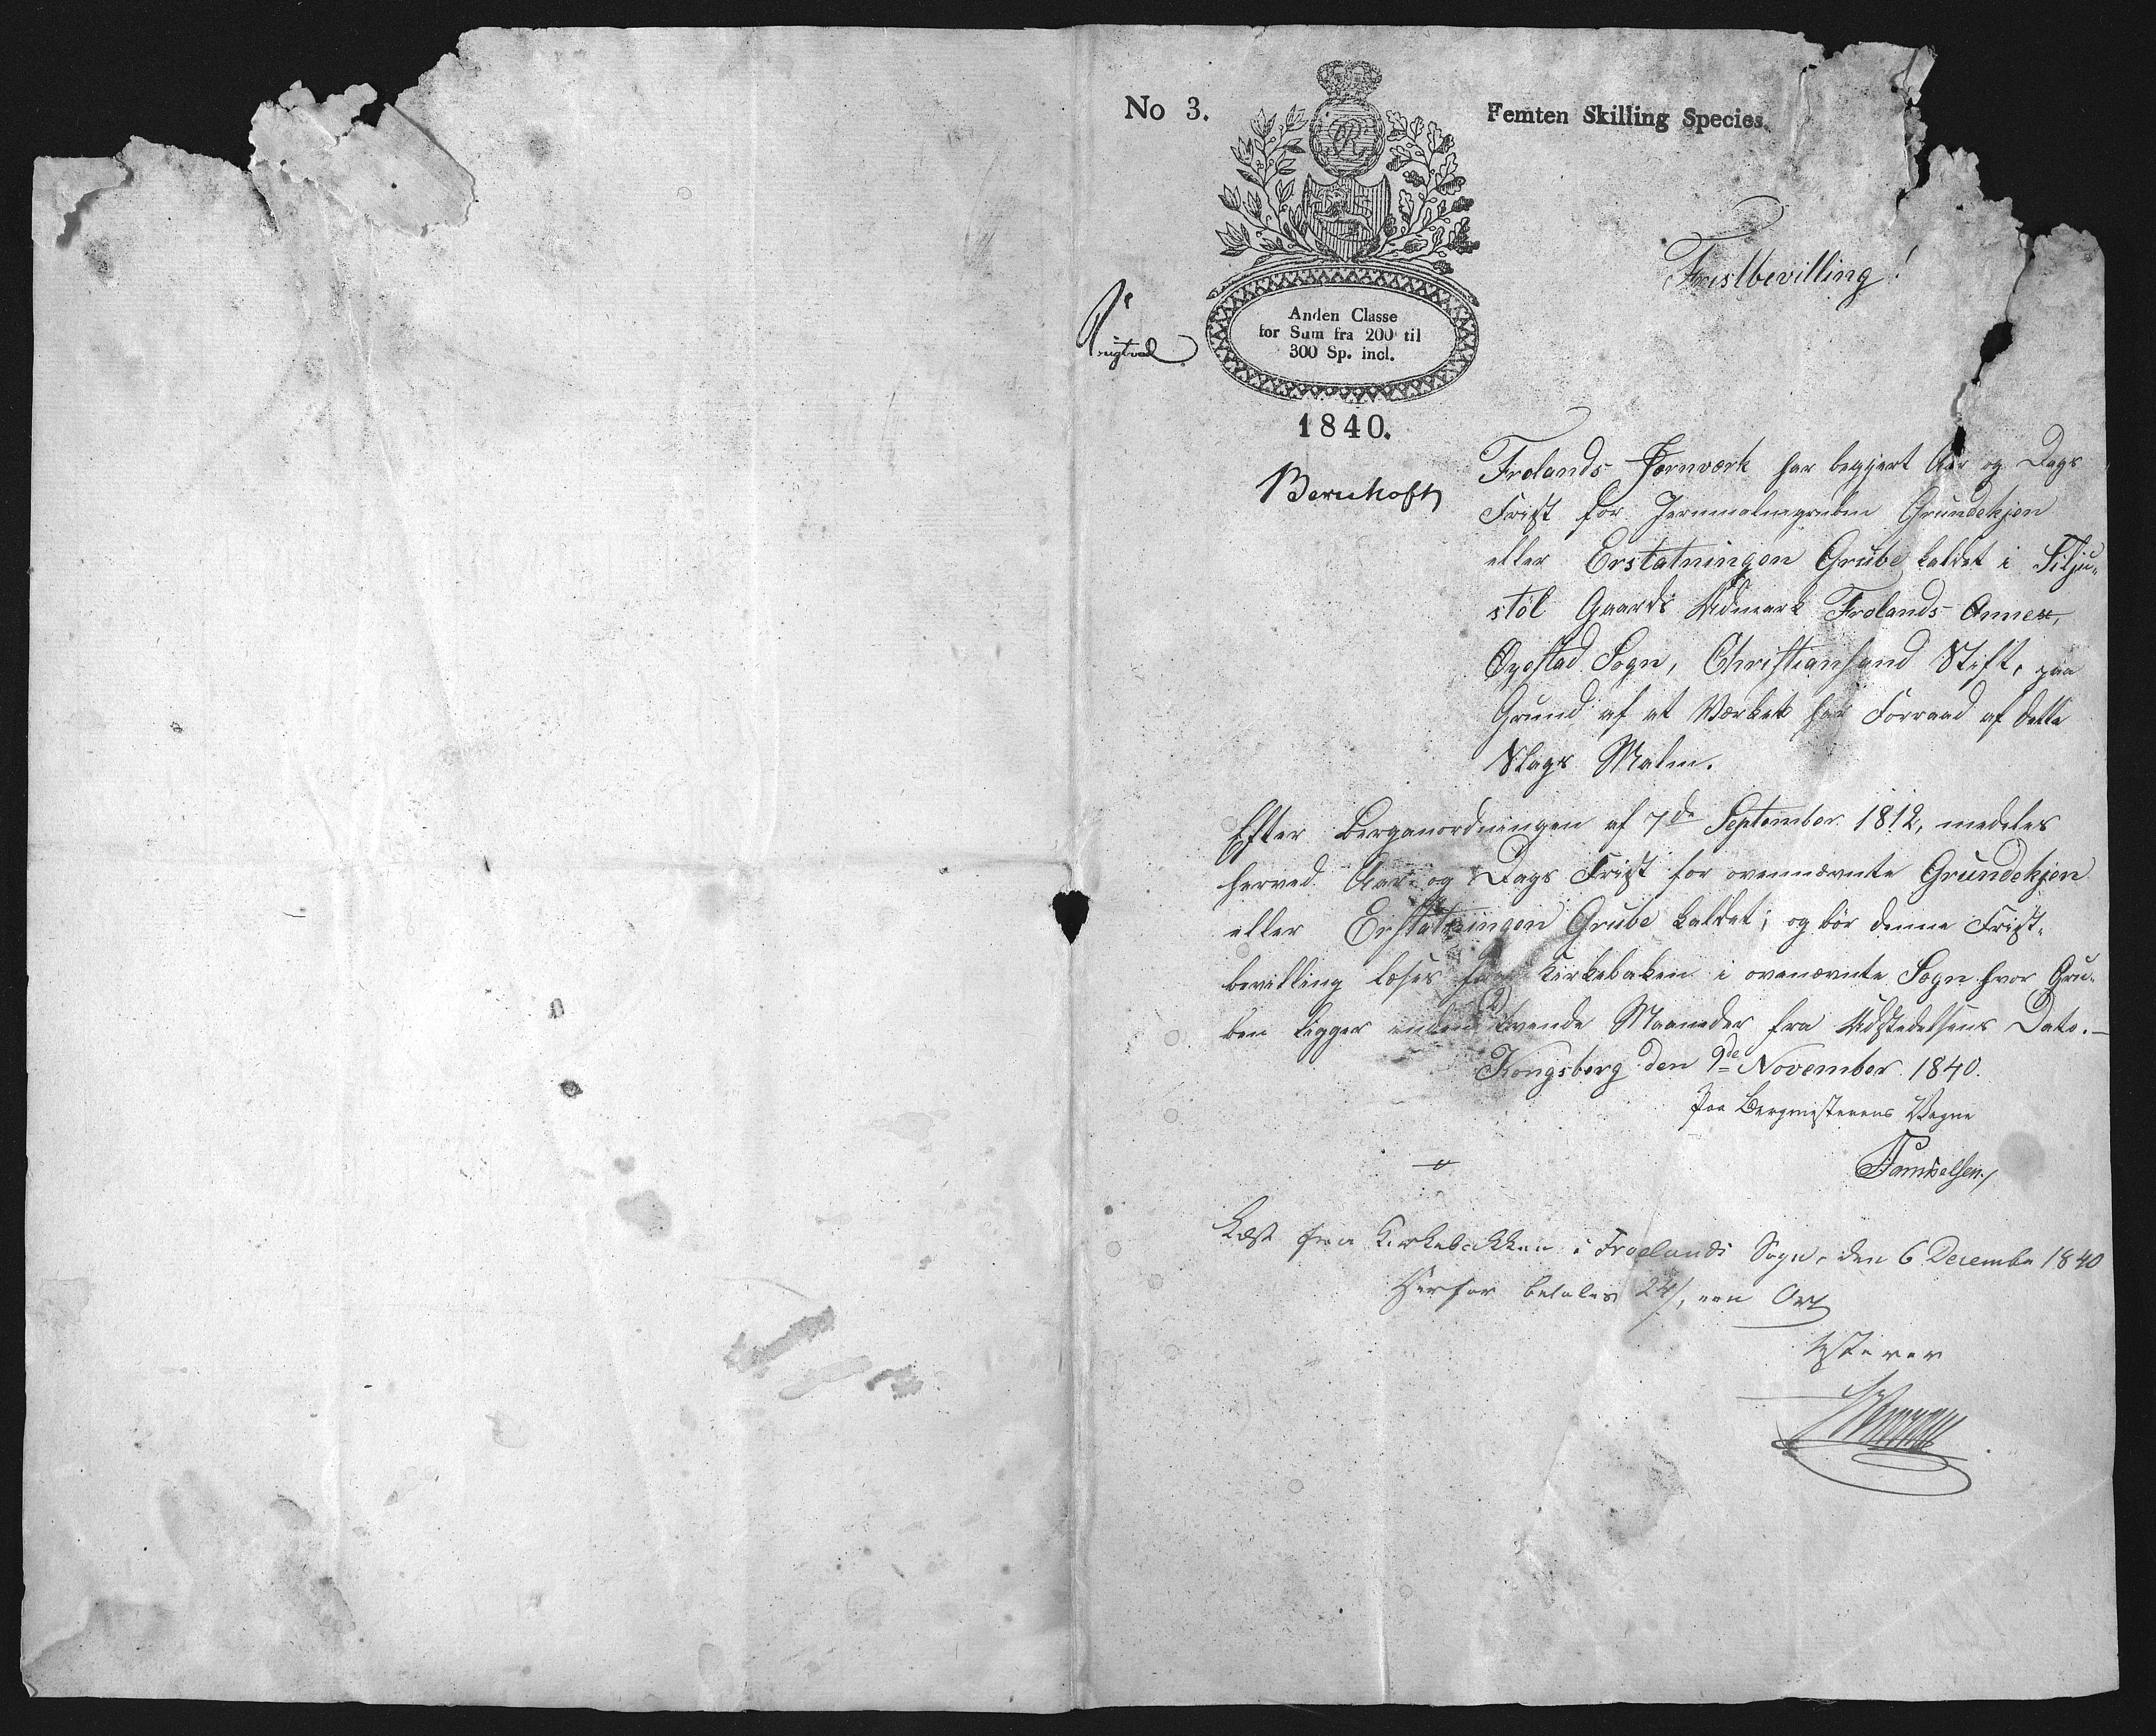 No 3.
Femten Skilling Species.
Fristbevilling!
Anden Classe
for Sum fra 200 til
300 Sp. incl.
1840.
Frolands Jernværk har begjert Aar og Dags
Frist for Jernmalmgruben Grundekjen
eller Erstatningen Grube kaldet i Silju-
støl Gaards Udmark Frolands Annex,
Øyestad Sogn, Christiansand Stift, paa
Grund af at Værket har Forraad af dette
Slags Malm.
Efter Berganordningen af 7de September 1812, meddeles
herved Aar og Dags Frist for ovennævnte Grundekjen
eller Erstatningen Grube kaldet; og bør denne Frist-
bevilling læses fra Kirkebaken i ovenævnte Sogn hvor Gru-
ben ligger inden tvende Maaneder fra Udstedelsens Dato.—
Kongsberg den 9de November 1840.
Paa Bergmesterens Vegne
Samuelsen
Læst fra Kirkebakken i Froelands Sogn, den 6 December 1840
Herfor betales 24/, een Ort